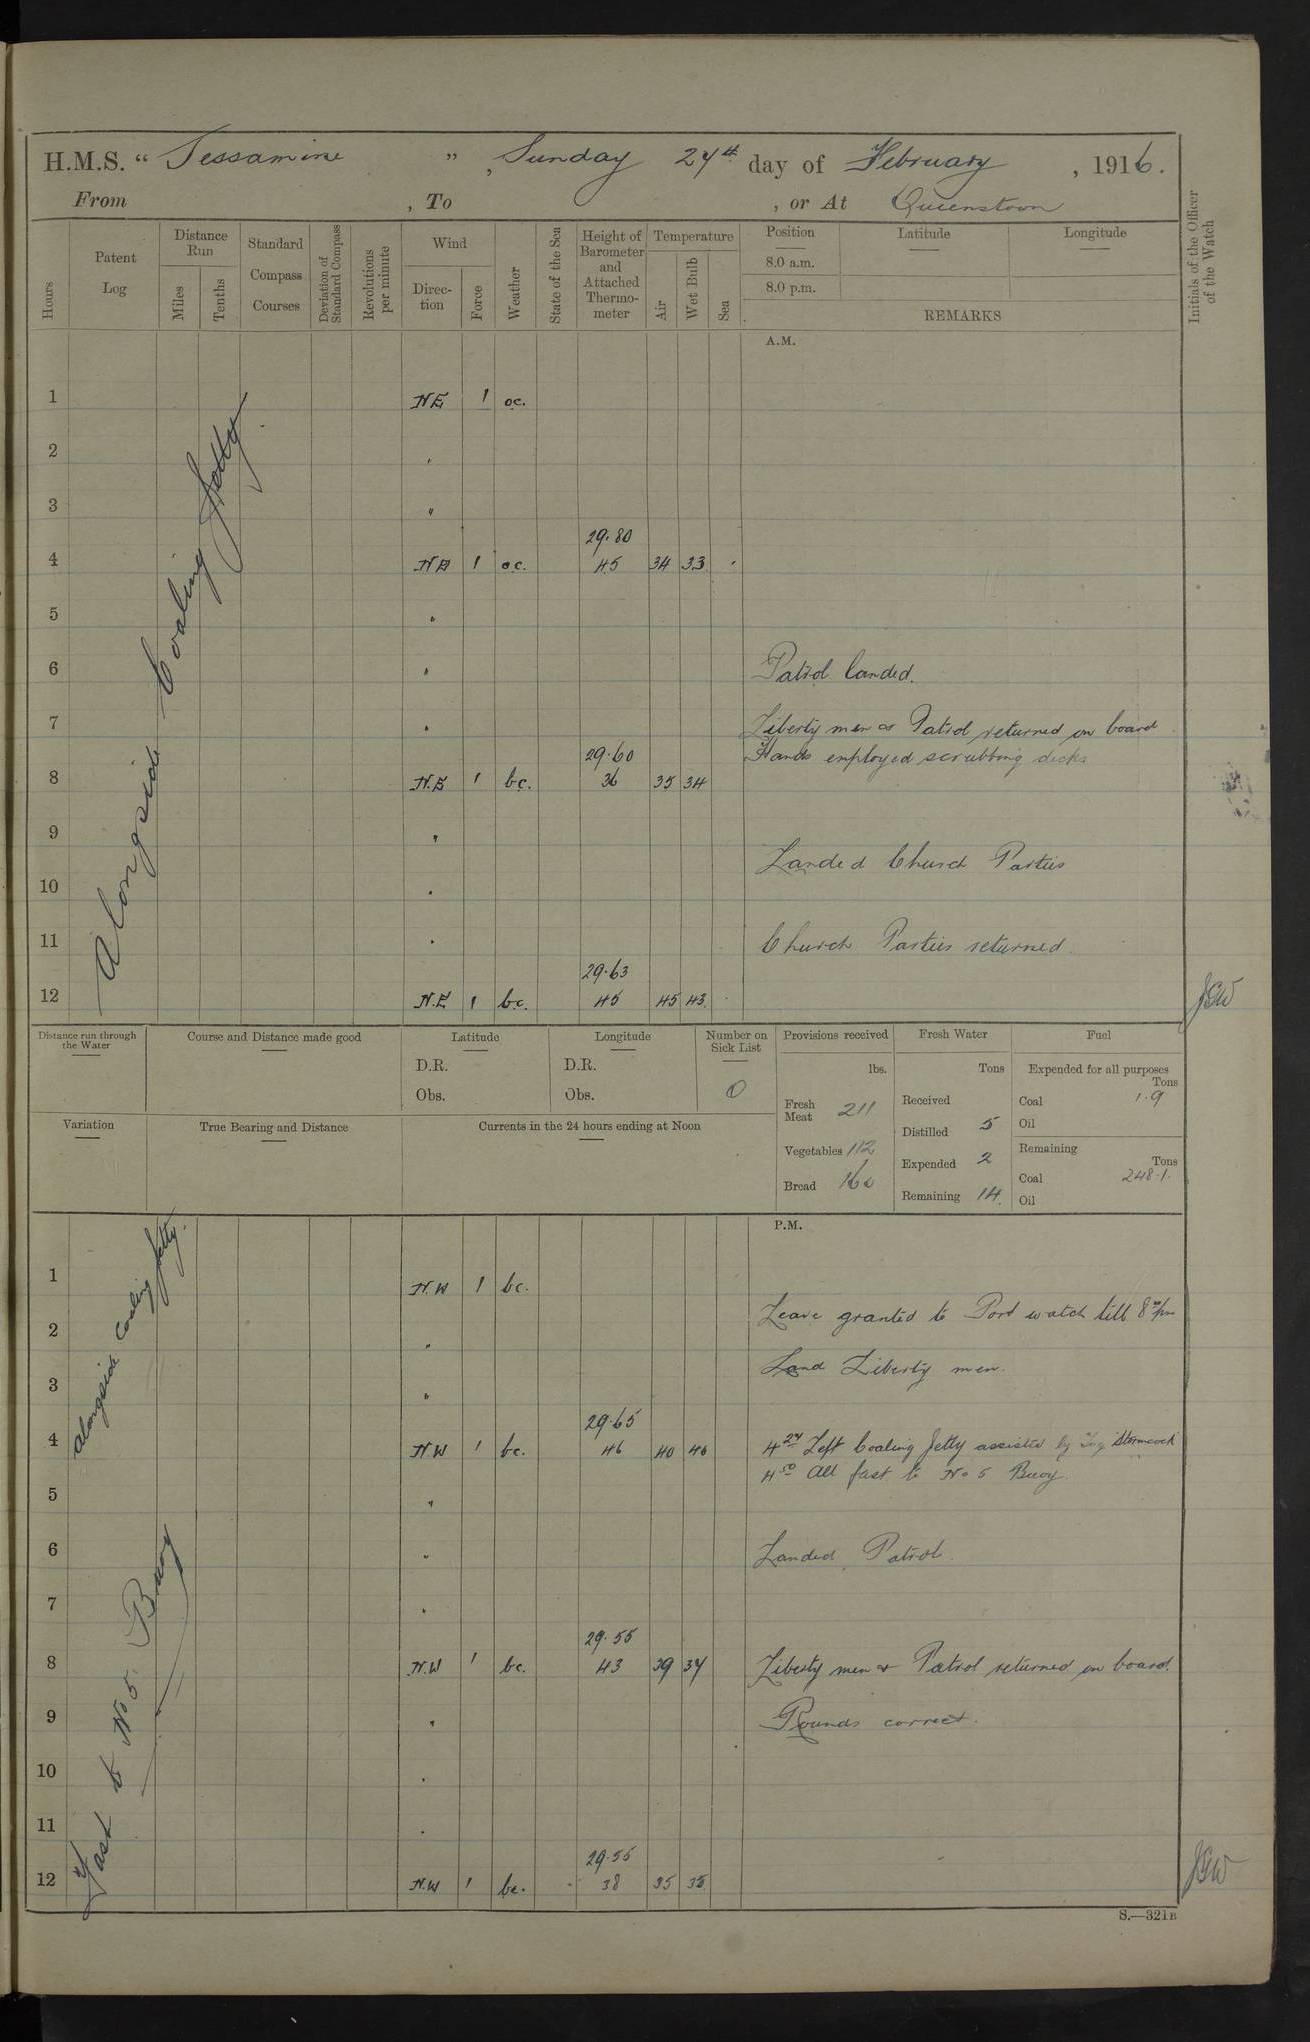 H.M.S. “ Jessamine ” , Sunday 27th day of February , 1916.
From , To , or At Queenstown
Hours
Patent Log
Distance Run
Miles
Tenths
Standard Compass Courses
Deviation of Standard Compass
Revolutions per minute
Wind
Direction
Force
Weather
State of the Sea
Height of Barometer and Attached Thermometer
Temperature
Air
Wet Bulb
Sea
Position
8.0 a.m.
8.0 p.m.
Latitude
Longitude
REMARKS
Initials of the Officer of the Watch
A.M.
Alongside Coaling Jetty
1 NE 1 oc.
2 "
3 "
29.80
4 NE 1 oc. 45 34 33
5 "
6 " Patrol landed.
7 " Liberty men & Patrol returned on board
29.60 Hands employed scrubbing decks
8 N.E 1 bc. 36 35 34
9 "
Landed Church Parties
10 "
11 " Church Parties returned
29.63
12 N.E 1 bc. 45 45 43 JGW
Distance run through the Water
Course and Distance made good
Latitude
D.R.
Obs.
Longitude
D.R.
Obs.
Number on Sick List
0
Variation
True Bearing and Distance
Currents in the 24 hours ending at Noon
Provisions received
lbs.
Fresh Meat 211
Vegetables 112
Bread 160
Fresh Water
Tons
Received
Distilled 5
Expended 2
Remaining 14
Fuel
Expended for all purposes
Tons
Coal 1.9
Oil
Remaining
Tons
Coal 248.1.
Oil
P.M.
Alongside Coaling Jetty.
1 N.W 1 bc.
Leave granted to Port watch till 8 pm
2 "
Land Liberty men.
3 "
29.65
4 N.W 1 bc. 46 40 40 4.27 Left Coaling Jetty assisted by Tug Stormcock
4.50 All fast to No 5 Buoy
5 "
6 " Landed Patrol.
7 "
Fast to No 5. Buoy
29.55
8 N.W 1 bc. 43 39 37 Liberty men & Patrol returned on board.
9 " Rounds correct.
10 "
11 "
29.55
12 N.W 1 bc. 38 35 35 JGW
S.—321B